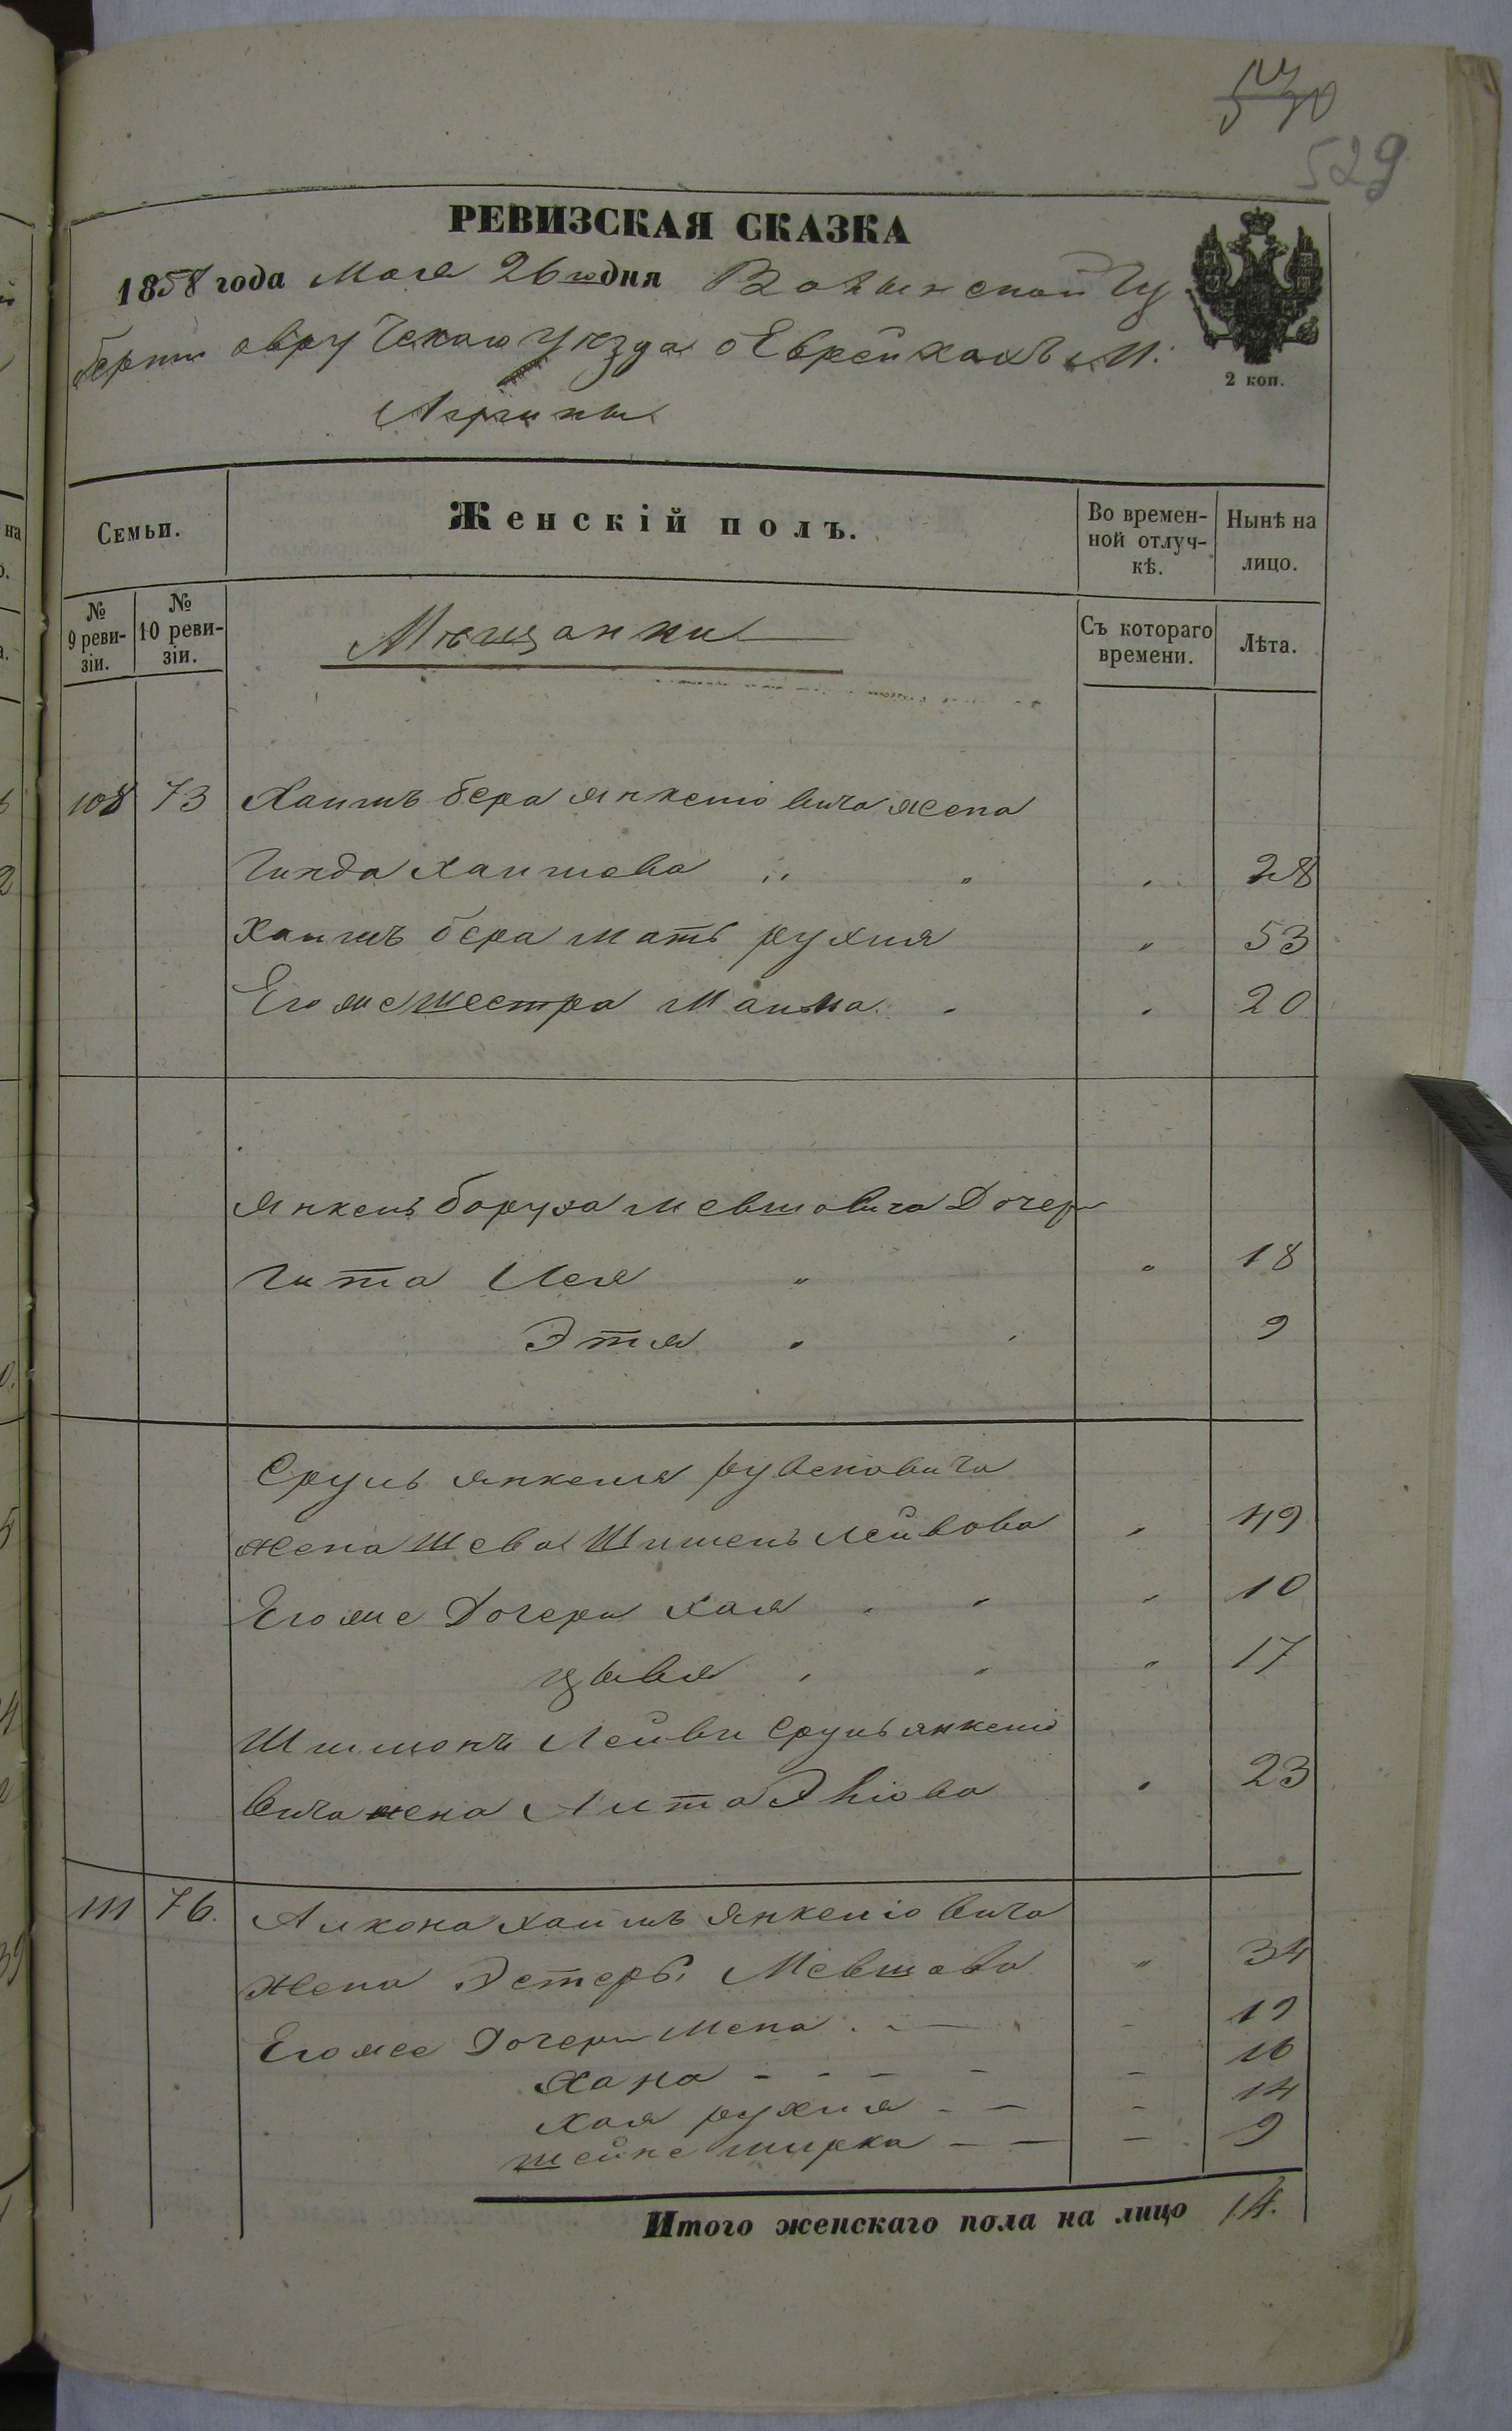 530
529
РЕВИЗСКАЯ СКАЗКА
1858 года Мая 26 дня Волынской Гу
берніи овручскаго уѣзда о Еврейкахъ м.
2 коп.
Семьи.
Женскій полъ.
Во времен-
ной отлуч-
кѣ.
Нынѣ на
лицо.
№
9 реви-
зіи.
№
10 реви-
зіи.
Мѣщанки
Съ котораго
времени.
Лѣта.
108 73 Хаимъ бера янкеліовича жена
Гинда Хаимова " " " 28
Хаимъ бера мать рухля " 53
Его же шестра Малка " " 20
Янкель боруха мевшовича Дочери
Гита Лея " " 18
Этя " " 9
Сруль янкеля рувеновича
жена Шева Лейбова " 49
Его же Дочери хая " " " 10
цывя " " " 17
Шимонъ Лейби Сруль янкеліо
вича жена " 23
111 76. Алкона хаимъ янкеліовича
жена Эстеръ Мевшова " 34
Его же Дочери Мена - - 19
хана - - - - - 16
хая рухля - - - 14
шейне мирка - - - 9
Итого женскаго пола на лицо 14.